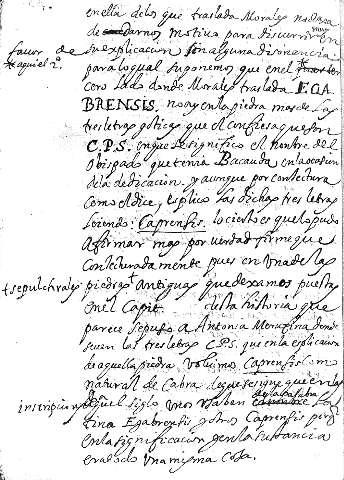 en ella de los que traslada Morales no dexa
de darnos motivo para discurrir en
su explicacion sin alguna disonancia
para lo qual suponemos que en el
cero lado donde Morales traslada EGA
BRENSIS. no ay en la piedra mas de las
tres letras goticas que el confiesa que son
C.P.S. en que se significo el nombre del
Obispado que tenia Bacauda en la ocasion
de la dedicacion. y aunque por conjectura
como el dice, esplico las dichas tres letras
leiendo: Caprensis. lo cierto es que lo pudo
afirmar mas por verdad firme que
conjecturadamente pues en una de las
piedras antiguas que dexamos puestas
en el Capit. desta historia que
parece sepulcro a Antonia
se veen las tres letras C.P.S. que en la explicacion
de aquella piedra volvimos Caprensis como
natural de Cabra de que se sigue que en
aquel siglo unos usaben la palabra La
tina Egabrensis y otros Caprensis
en la significacion y en la sustancia
era todo una misma cosa.
favor de
Recaquiel 2º.
+sepulchrales
inscripcion